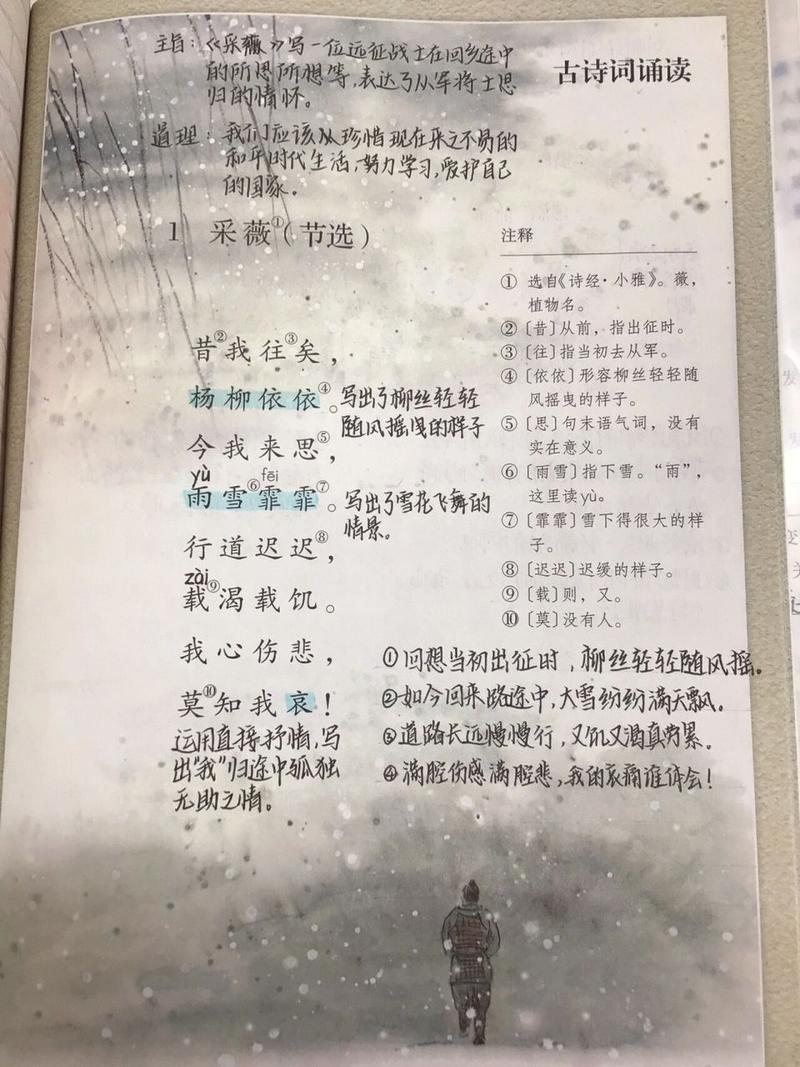 主旨：《采薇》写一位远征战士在回乡途中
的所思所想等，表达了从军将士思
归的情怀。
古诗词诵读
道理：我们应该从珍惜现在来之不易的
和平时代生活，努力学习，爱护自己
的国家。
1 采薇①（节选）
昔②我往③矣，
杨柳依依④。
写出了柳丝轻轻
随风摇曳的样子
今我来思⑤，
yù fēi
雨雪⑥霏霏⑦。
写出了雪花飞舞的
情景。
行道迟迟⑧，
zài
载⑨渴载饥。
我心伤悲，
莫⑩知我哀！
运用直接抒情，写
出“我”归途中孤独
无助之情。
注释
① 选自《诗经·小雅》。薇，
植物名。
②〔昔〕从前，指出征时。
③〔往〕指当初去从军。
④〔依依〕形容柳丝轻轻随
风摇曳的样子。
⑤〔思〕句末语气词，没有
实在意义。
⑥〔雨雪〕指下雪。“雨”，
这里读yù。
⑦〔霏霏〕雪下得很大的样
子。
⑧〔迟迟〕迟缓的样子。
⑨〔载〕则，又。
⑩〔莫〕没有人。
①回想当初出征时，柳丝轻轻随风摇。
②如今回来路途中，大雪纷纷满天飘。
③道路长远慢慢行，又饥又渴真劳累。
④满腔伤感满腔悲，我的哀痛谁体会！